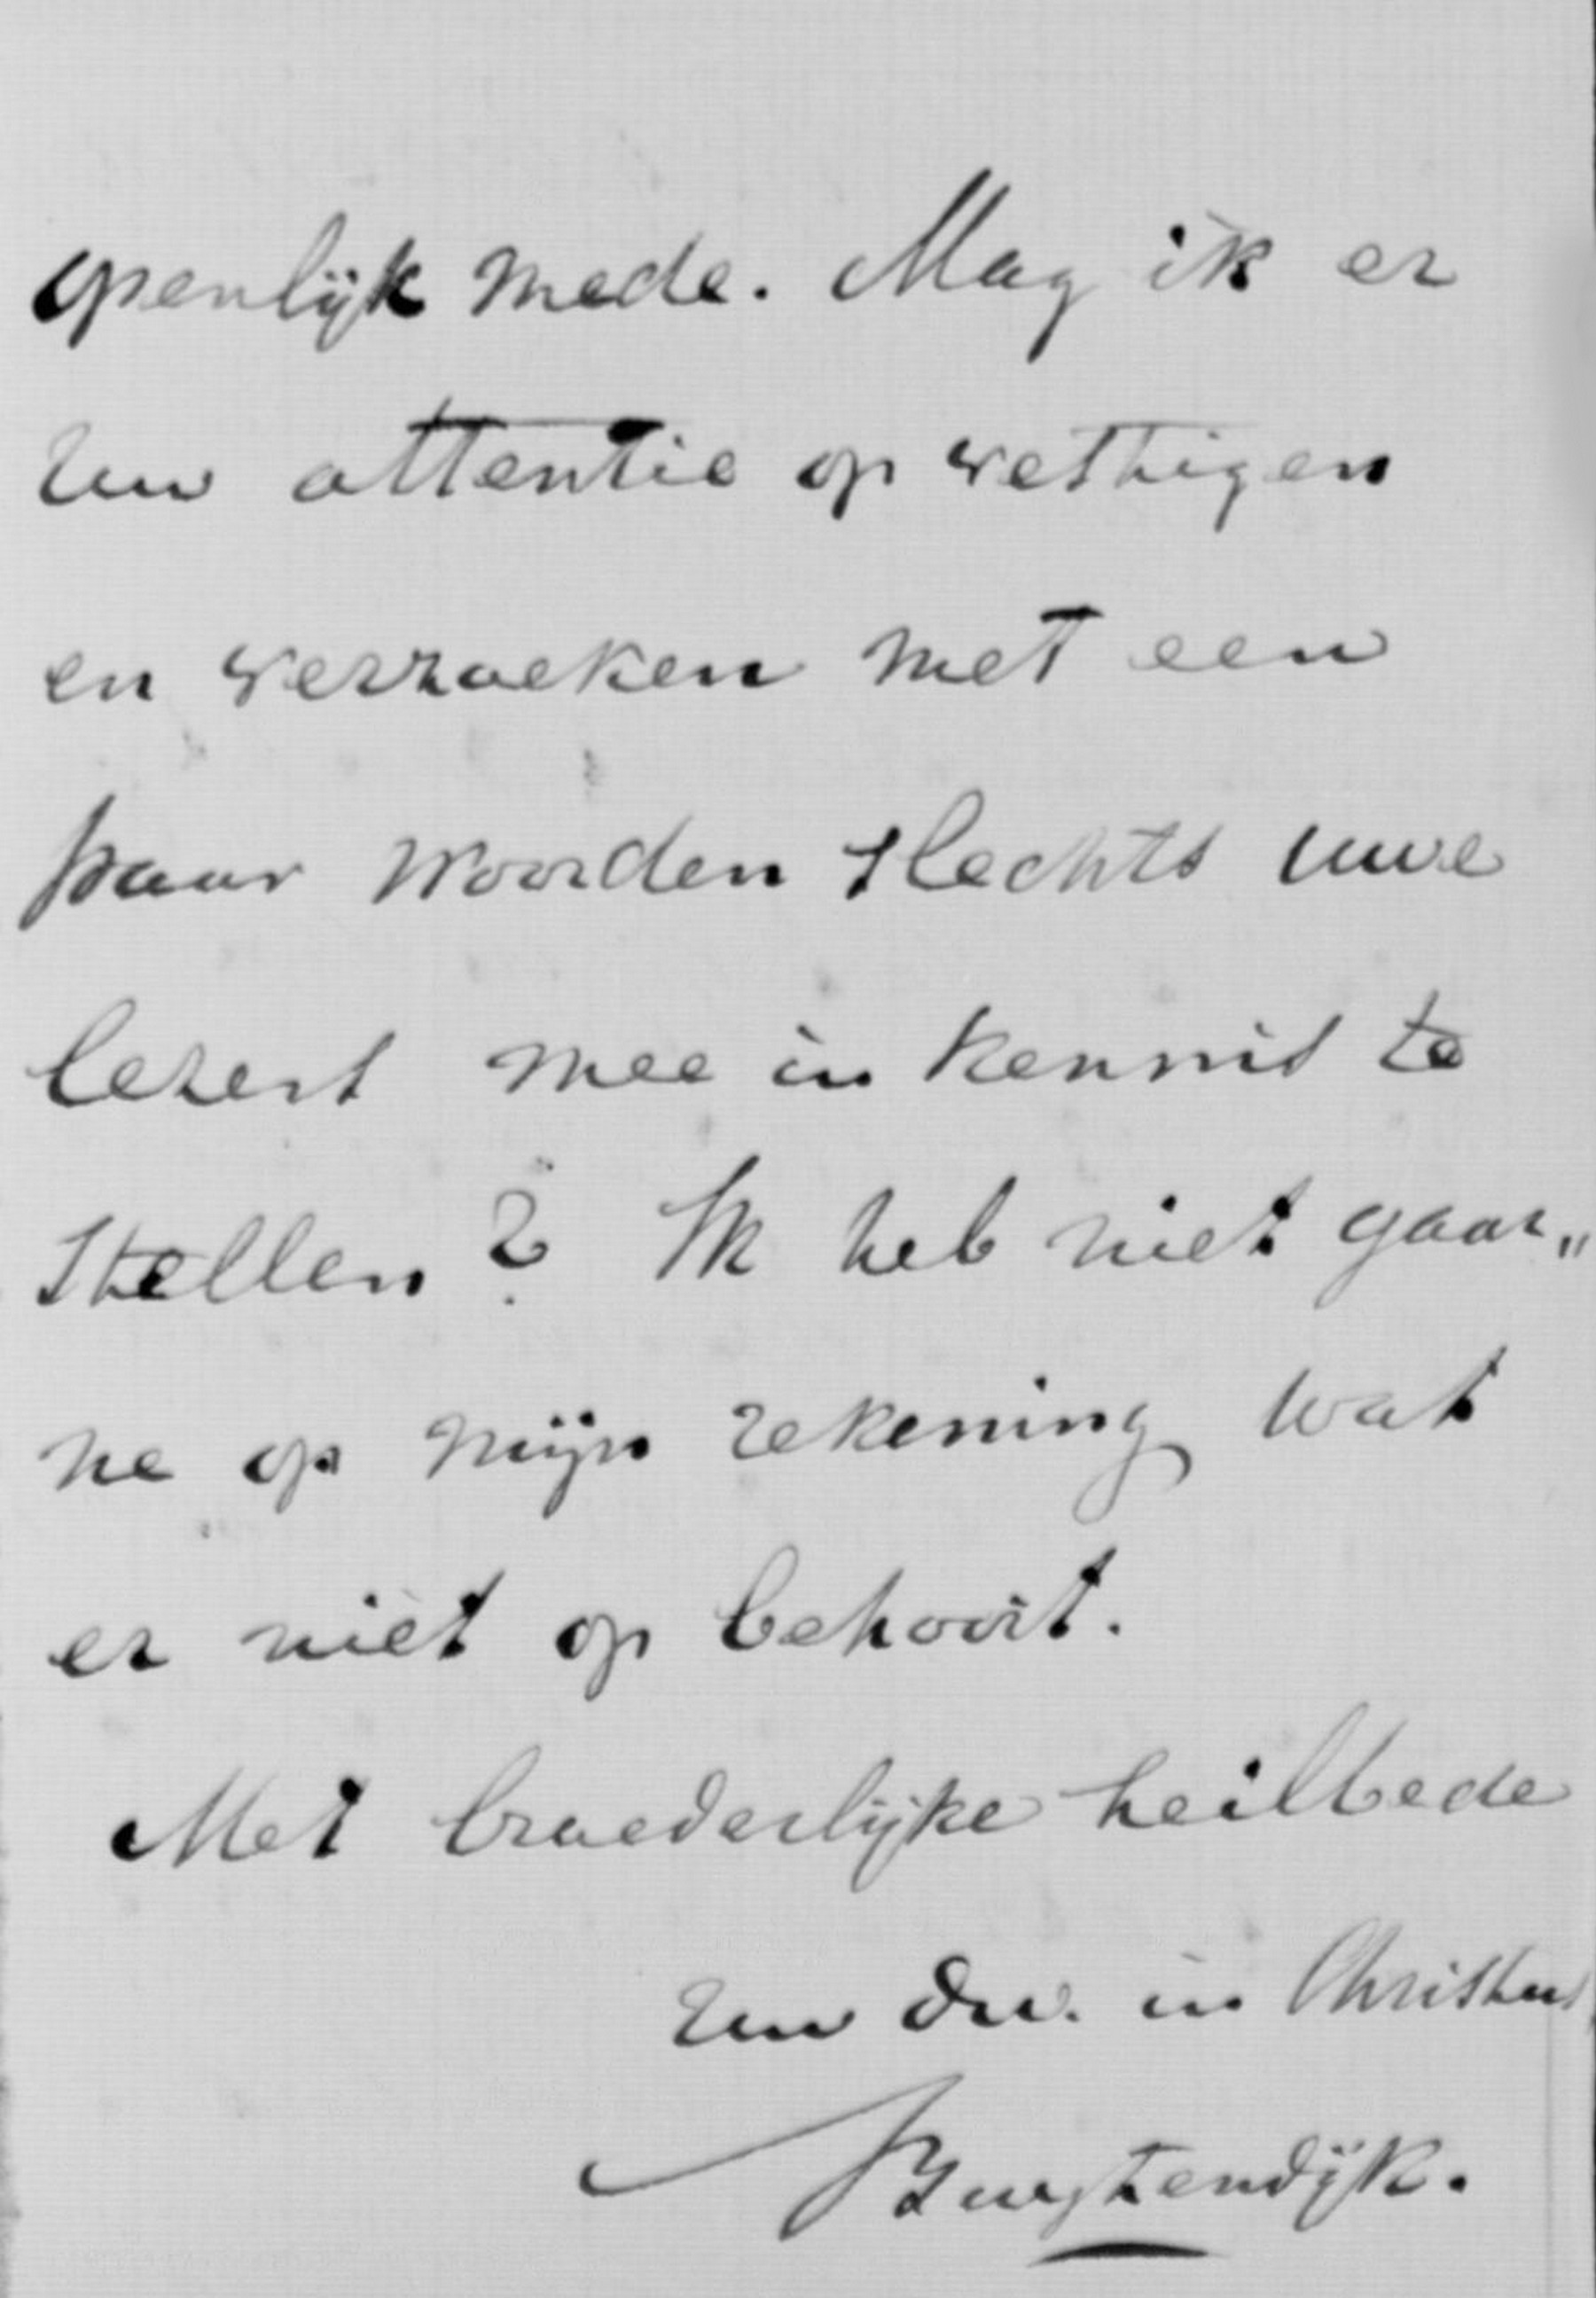 openlijk mede. Mag ik er
Uw attentie op vestigen
en verzoeken met een
paar woorden slechts uwe
lezers mee in kennis te
stellen? Ik heb niet gaar„
ne op mijn rekening wat
er niet op behoort.
Met broederlijke heilbede
Uw dw. in Christus
Buytendijk.